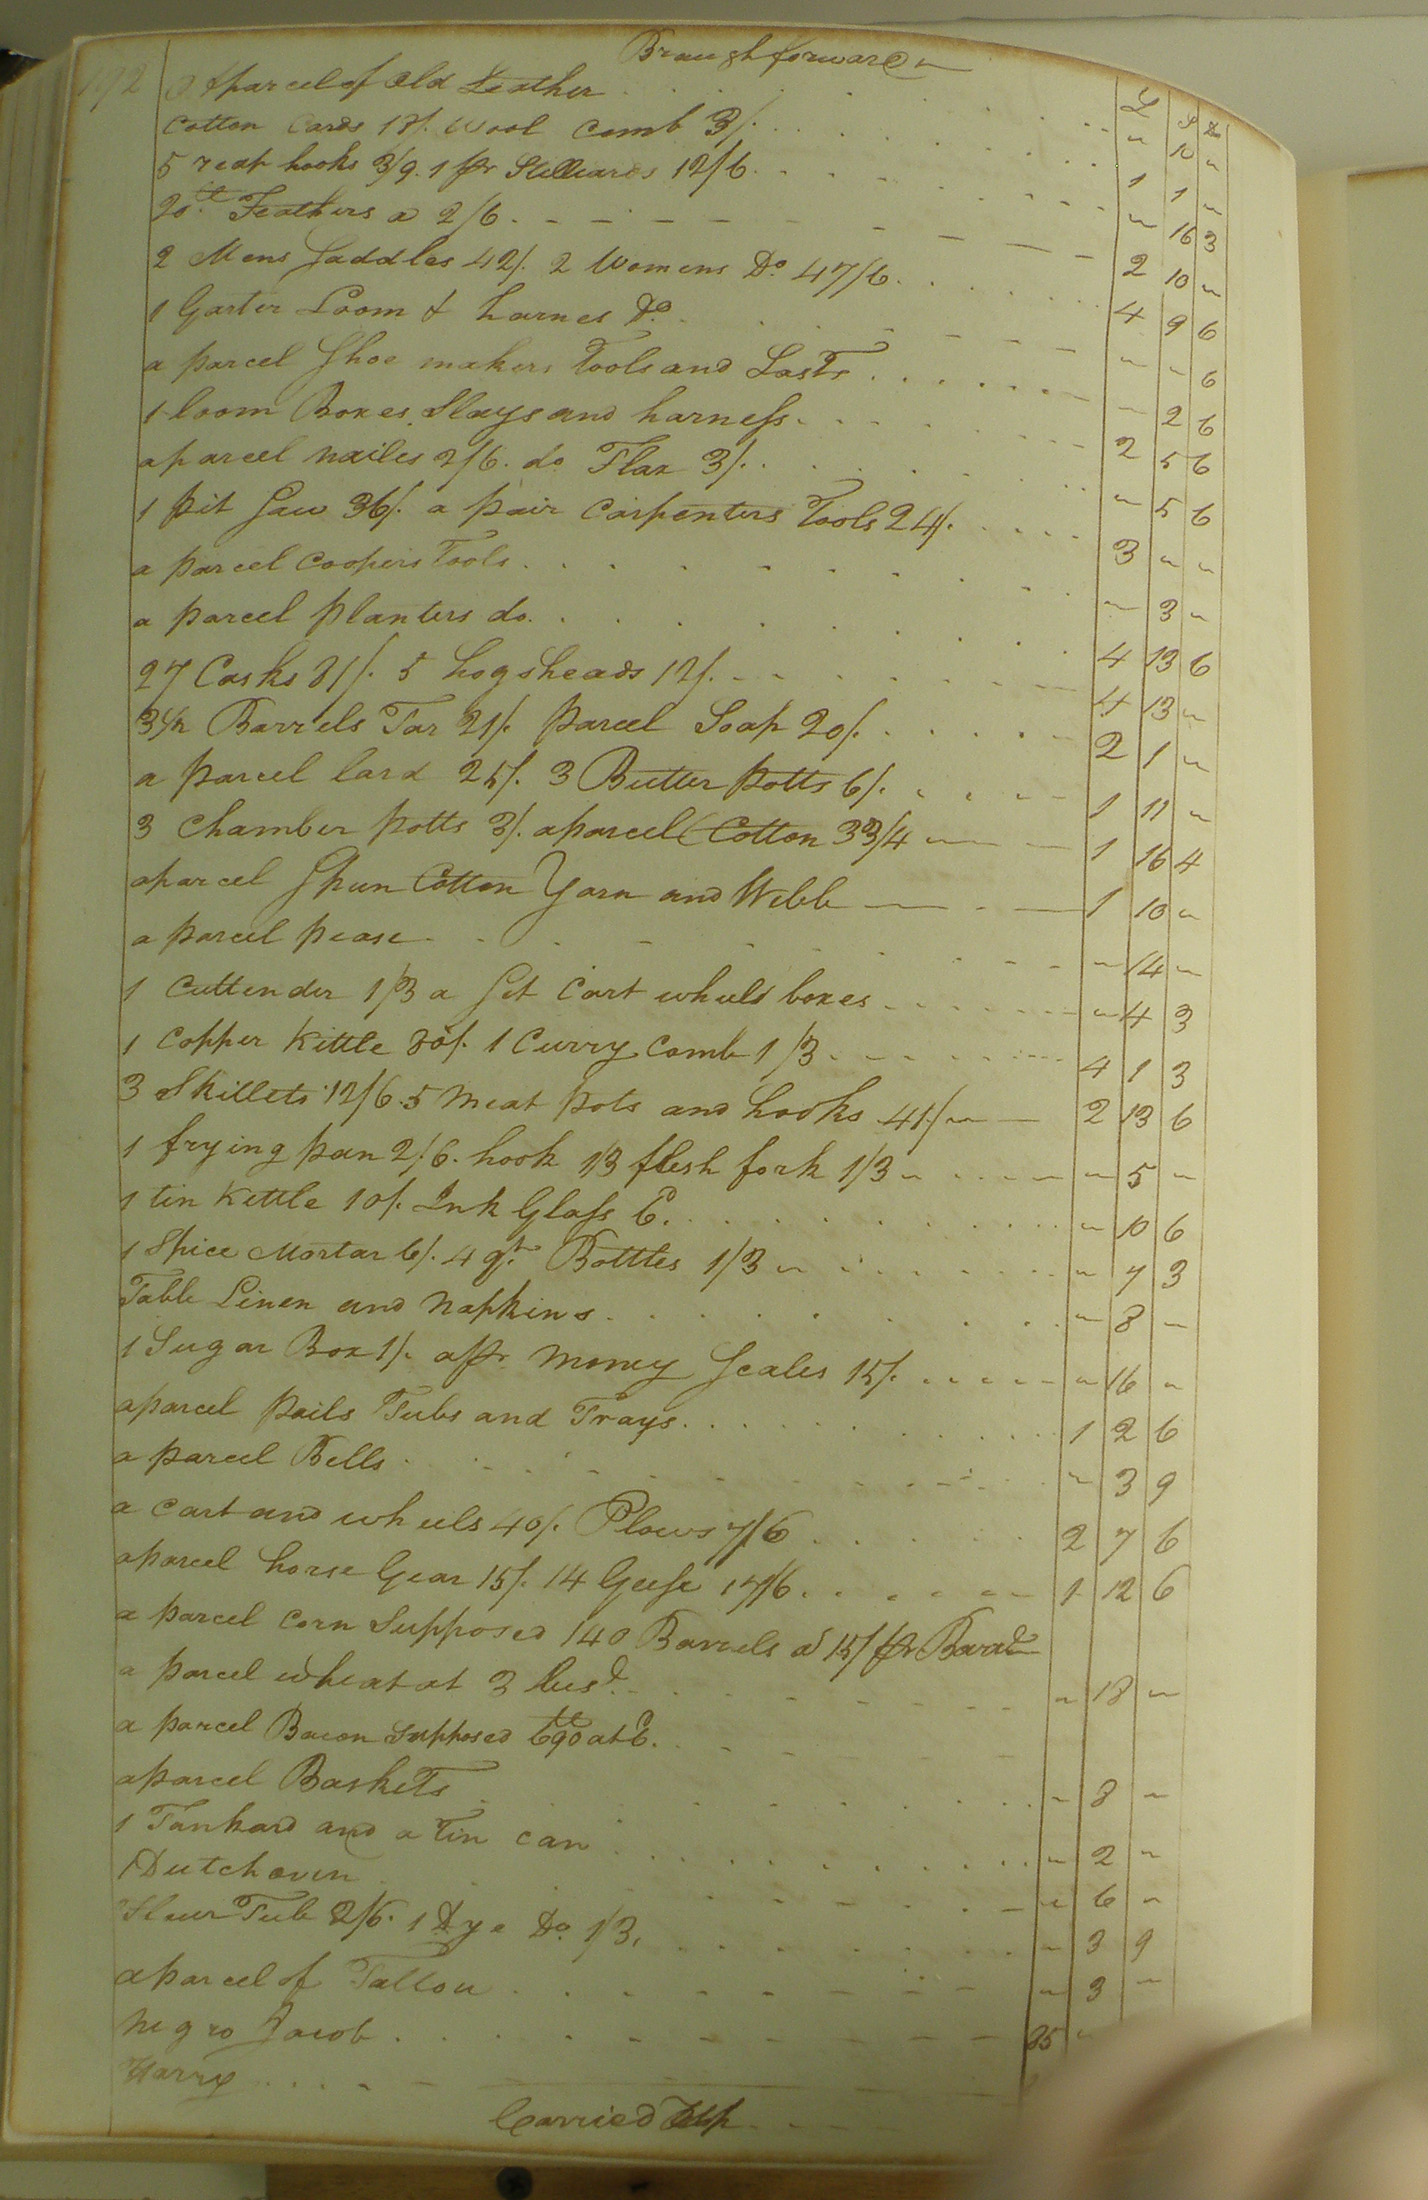 Braught forward
192 A parcel of Old Leather £ S D
" 10 "
Cotton Cards 18/. Wool comb 3/. 1 1 "
5 reap hooks 3/9. 1 pr Stilliards 12/6. " 16 3
20lb. Feathers a 2/6. 2 10 "
2 Mens Saddles 42/. 2 Womens Do. 47/6. 4 9 6
1 Garter Loom & harnes Do. " " 6
a parcel Shoe makers Tools and Lasts " 2 6
1 loom Boxes, Slays and harness. 2 5 6
a parcel nailes 2/6. do Flax 3/. " 5 6
1 pit Saw 36/. a pair Carpenters Tools 24/. 3 " "
a parcel Coopers Tools. " 3 "
a parcel planters do. 4 13 6
27 Casks 81/. 5 hogsheads 12/. 4 13 "
3 1/2 Barrels Tar 21/. parcel Soap 20/. 2 1 "
a parcel lard 25/. 3 Butter potts 6/. 1 11 "
3 Chamber potts 3/. a parcel Cotton 33/4 1 16 4
a parcel Spun Cotton Yarn and Webb 1 10 "
a parcel pease " 14 "
1 Cuttender 1/3 a Set Cart wheels boxes " 4 3
1 Copper Kittle 80/. 1 Curry Comb 1/3 4 1 3
3 Skillets 12/6. 5 meat pots and hooks 41/ 2 13 6
1 frying pan 2/6. hook 1/3 flesh fork 1/3 " 5 "
1 tin Kettle 10/. Ink Glass 6. " 10 6
1 Spice Mortar 6/. 4 qt. Bottles 1/3 " 7 3
Table Linen and napkins. " 8 "
1 Sugar Box 1/. a pr. money Scales 15/. " 16 "
a parcel pails Tubs and Trays. 1 2 6
a parcel Bells " 3 9
a Cart and wheels 40/. Plows 7/6 2 7 6
a parcel horse Gear 15/. 14 Geese 17/6. 1 12 6
a parcel corn Supposed 140 Barrels a 15/ pr Barrel
a parcel wheat at 3 Bush. " 18 "
a parcel Bacon Supposed 690 at 6.
a parcel Baskets " 8 "
1 Tankard and a Tin can " 2 "
1 Dutch oven " 6 "
Flour Tub 2/6. 1 Dye Do. 1/3. " 3 9
a parcel of Tallow " 3 "
Negro Jacob 85 "
Harry
Carried Up